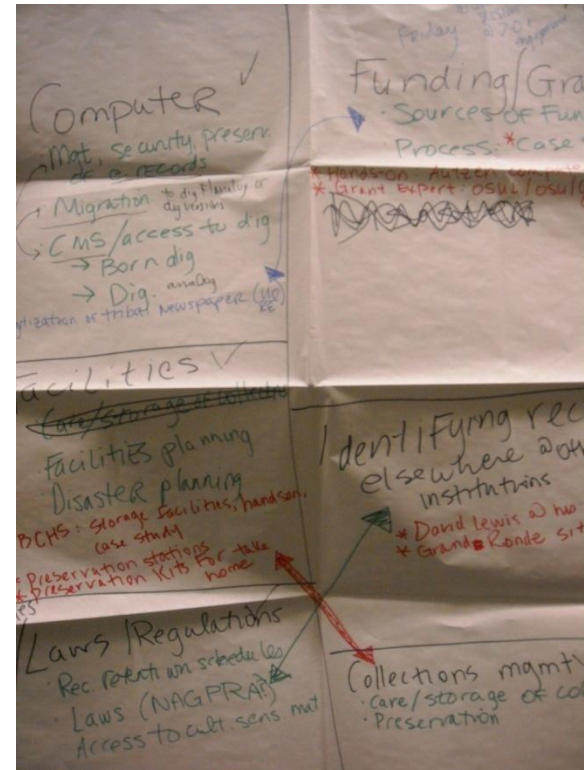 Computer ✓
Mgt, security, preserv.
of e-records
Migration to dig from analog or
dig versions
CMS/access to dig
→ Born dig
→ Dig. analog
tization of tribal newspaper (UO)
Facilities ✓
Care/storage of collections
Facilities planning
Disaster planning
BCHS: Storage facilities, handson,
case study
* Preservation stations
* Preservation Kits for take
home
Laws/Regulations
Rec. retention schedules
· Laws (NAGPRA?)
Access to cult. sens mat
Friday
Funding/Gra
· Sources of Fun
Process: *case
* Hands-on: Autzen compute
* Grant Expert: OSUL/OSU/
Identifying rec
elsewhere @ oth
institutions
* David Lewis @ two
* Grand Ronde sit
Collections mgmt
· Care/storage of col
· Preservation